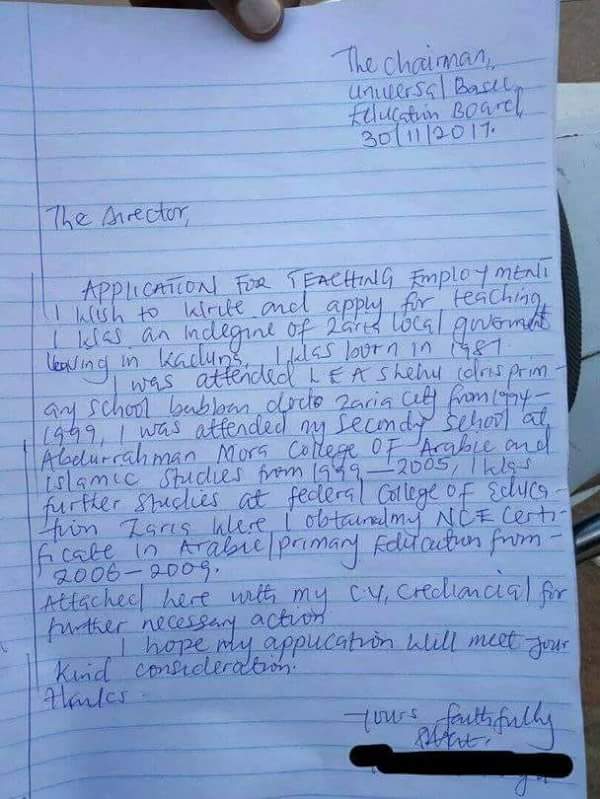 The Chairman,
Universal Basic
Education Board,
30/11/2017.
The Director,
APPLICATION FOR TEACHING Employment
I wish to write and apply for teaching,
I was an indegine of Zaria local goverment
leaving in Kaduna. I was born in 1987.
I was attended L E A Shehu idris prim-
ary school babban dodo Zaria City from 1994-
1999, I was attended my secondy school at
Abdurrahman Mora College OF Arabic and
islamic studies from 1999-2005, I was
further studies at federal College OF Educa-
tion Zaria where I obtained my NCE Certi-
ficate in Arabic/primary Education from-
2006-2009.
Attached here with my C.V, crediancial for
further necessary action
I hope my application will meet your
kind consideration.
thanks.
yours faithfully